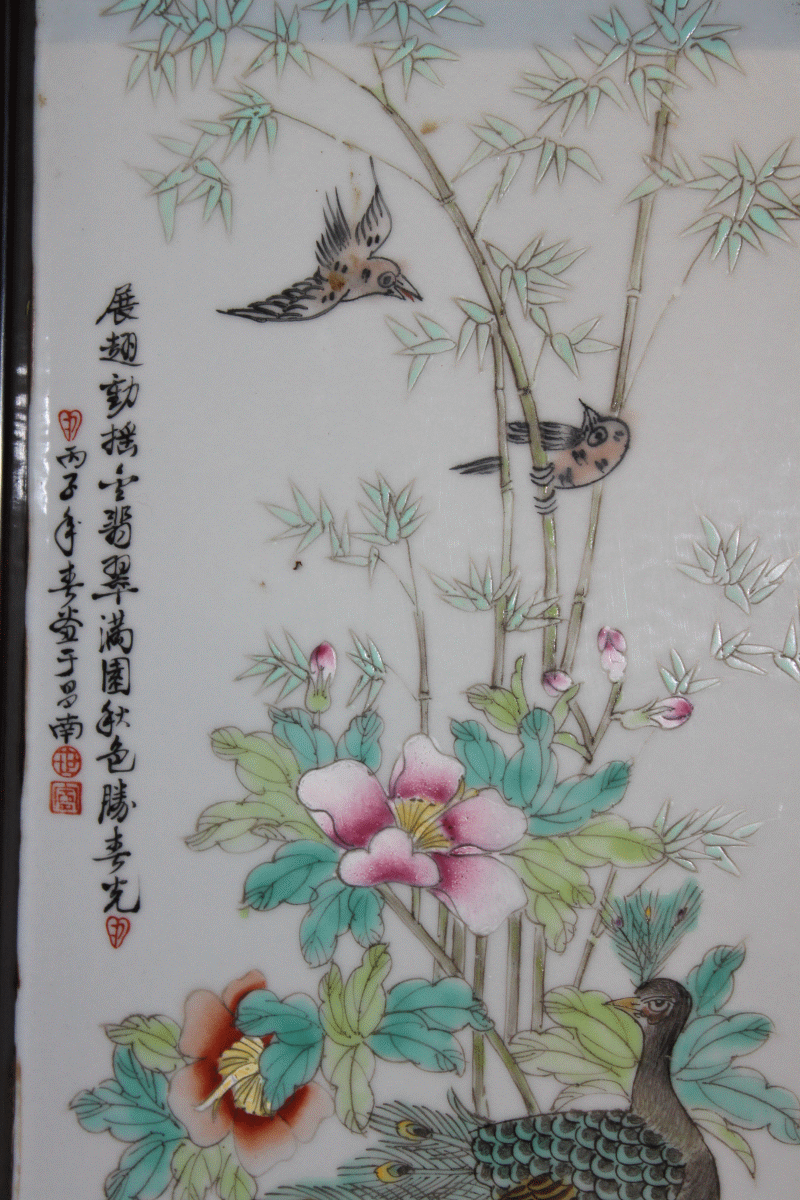 展翅動搖金翡翠滿園秋色勝春光
丙子年春畫于昌南